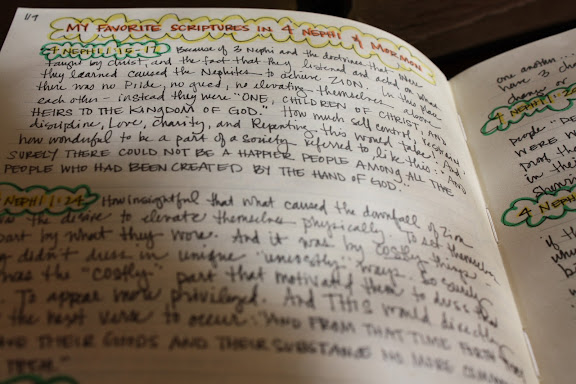 119
MY FAVORITE SCRIPTURES IN 4 NEPHI & MORMON
4 NEPHI 1:15-17 Because of 3 Nephi and the doctrine that was
taught by Christ, and the fact that they listened and acted on what
they learned caused the Nephites to achieve ZION. In this place
there was no Pride, no greed, no elevating themselves above
each other - instead they were "ONE, CHILDREN OF CHRIST, AND
HEIRS TO THE KINGDOM OF GOD." How much self control, restraint,
discipline, Love, Charity, and Repenting, this would take! And
how wonderful to be a part of a society referred to like this: "AND
SURELY THERE COULD NOT BE A HAPPIER PEOPLE AMONG ALL THE
PEOPLE WHO HAD BEEN CREATED BY THE HAND OF GOD."
NEPHI 1:24 How insightful that what caused the downfall of Zion
was the desire to elevate themselves physically. To set themselves
part by what they wore. And it was by costly things
didn't dress in unique "uncostly" ways
was the "costly" part that motivated them to dress that
To appear more privileged. And THIS would directly
the next verse to occur: "AND FROM THAT TIME FORTH
THEIR GOODS AND THEIR SUBSTANCE NO MORE COMMON
THEM."
one another...
have 3 cha
change or
NEPHI 1:2
people "DE
WERE W
prof tha
in the
Sharin
4 NEPH
if th
whe
be